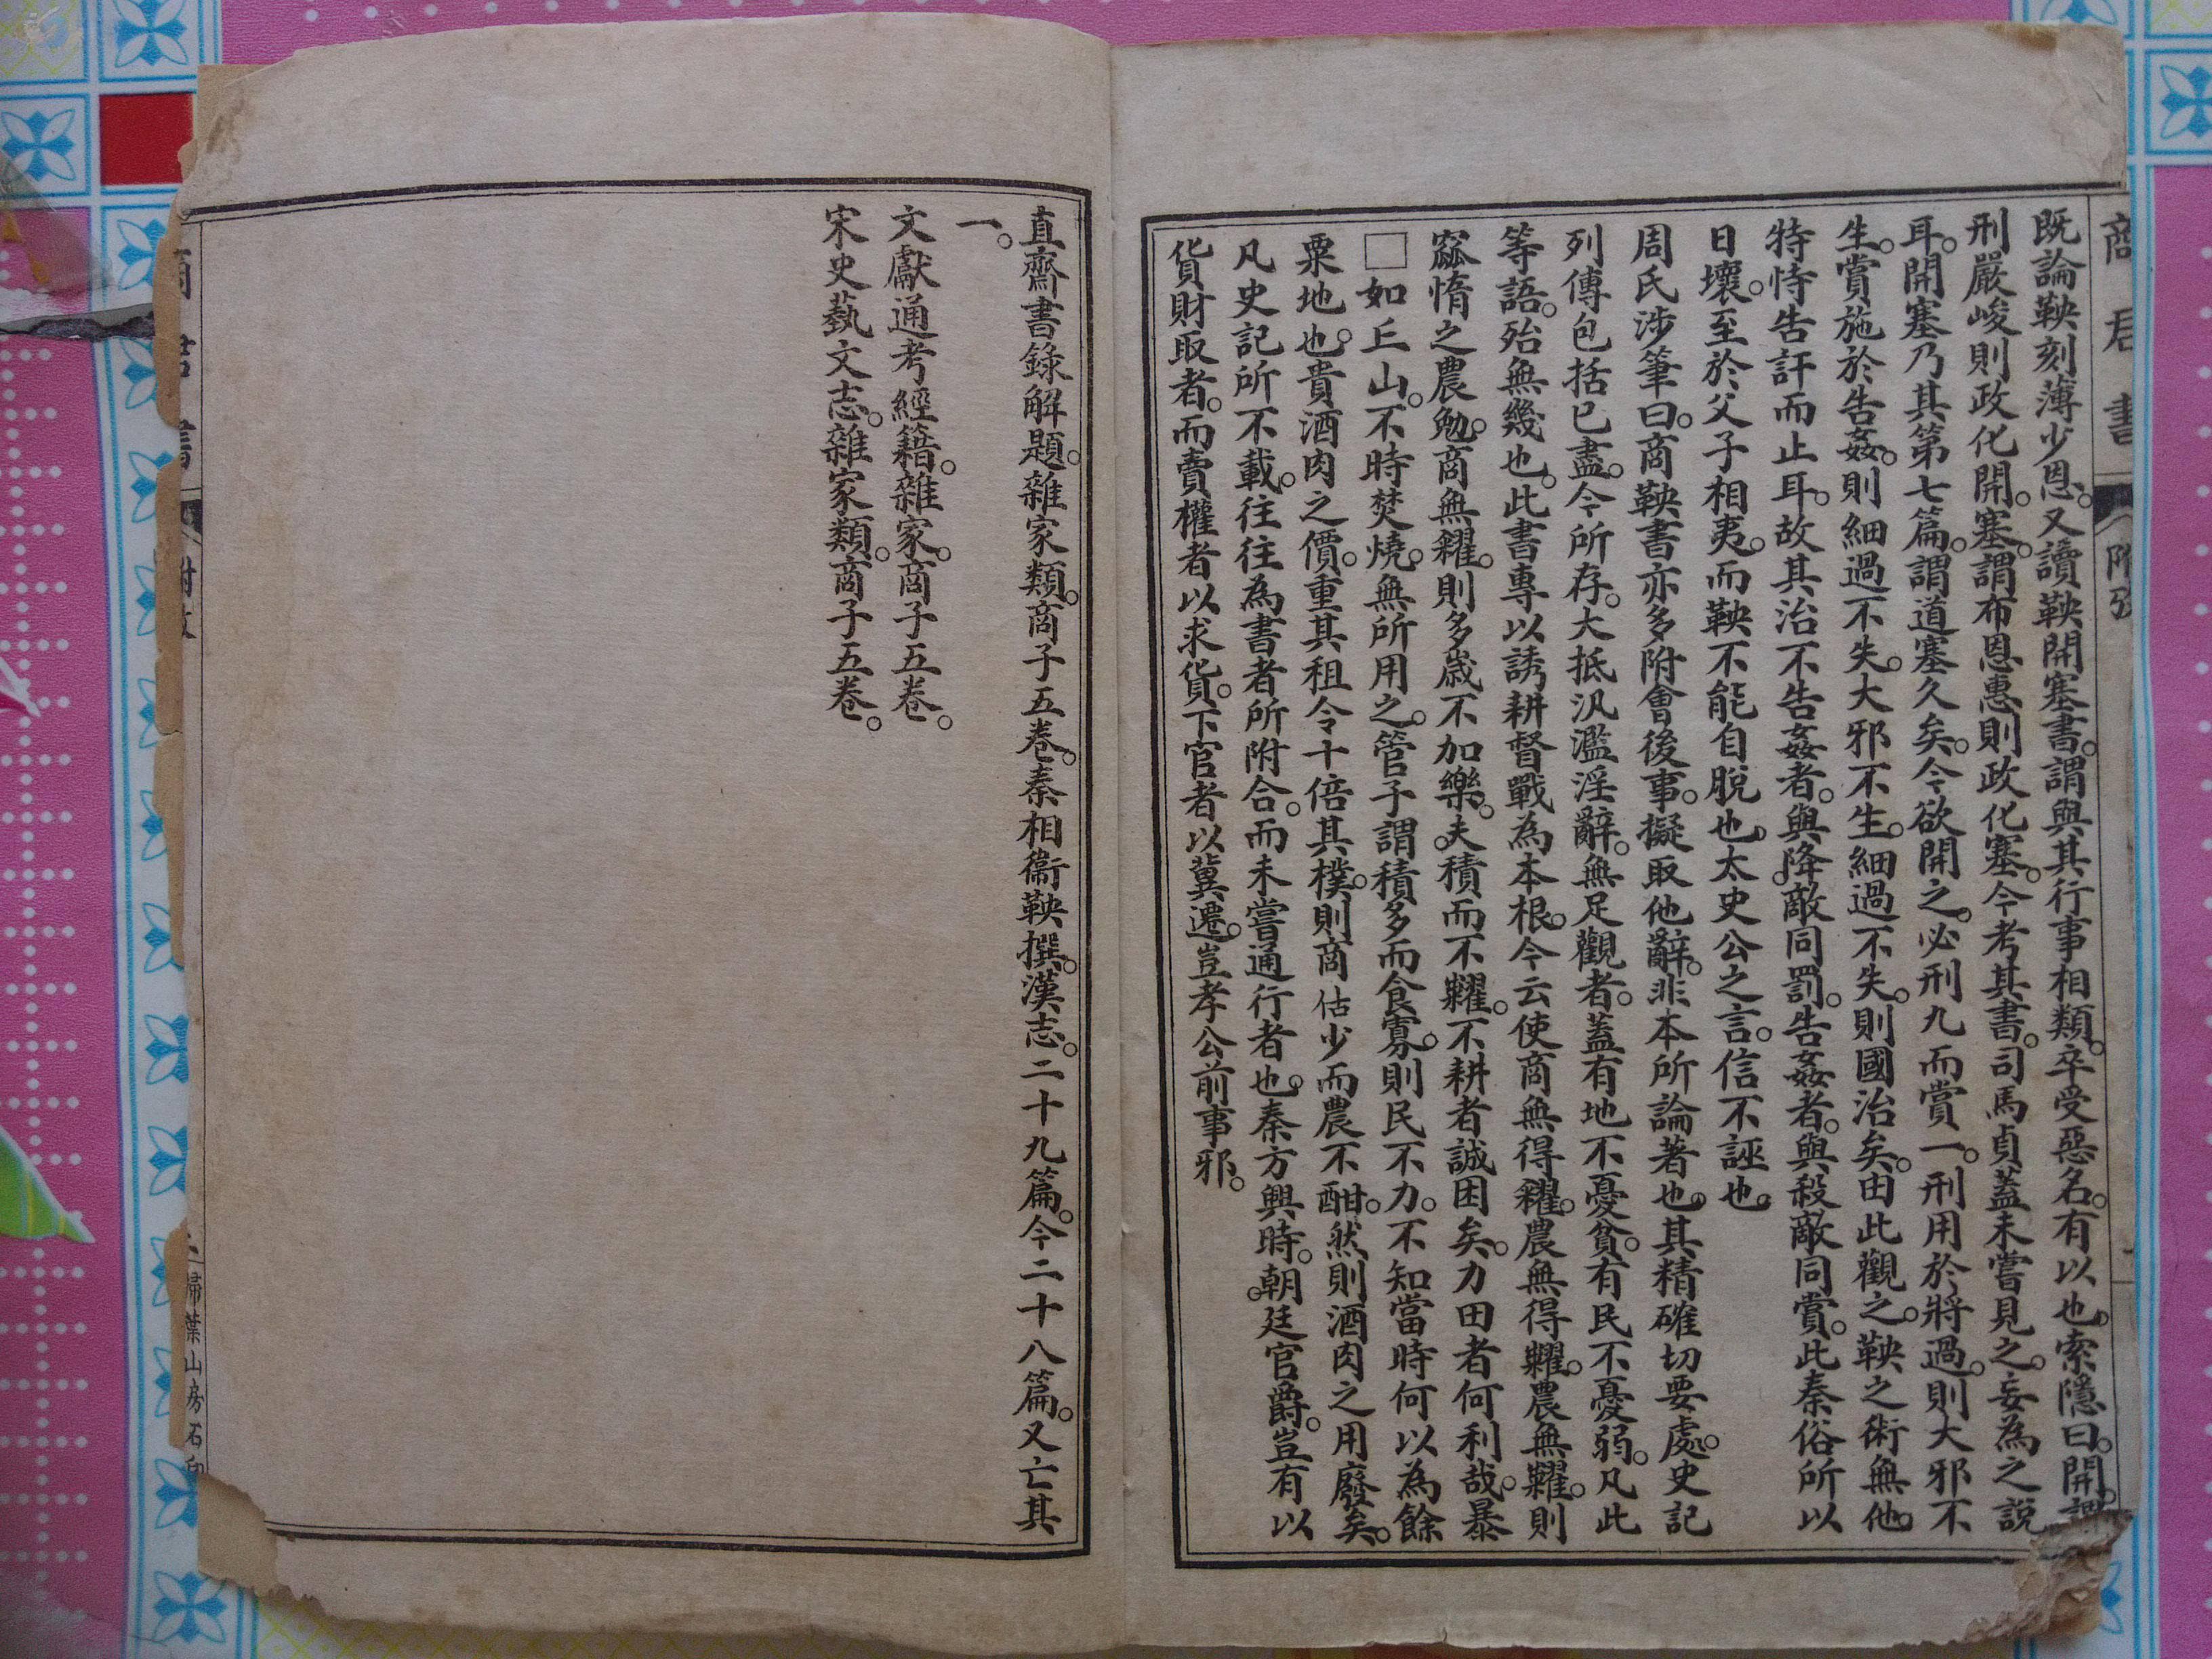 商君書 附攷
既論鞅刻薄少恩。又讀鞅開塞書。謂與其行事相類。卒受惡名。有以也。索隱曰。開謂
刑嚴峻則政化開。塞。謂布恩惠則政化塞。今考其書。司馬貞蓋未嘗見之。妄為之說
耳。開塞乃其第七篇。謂道塞久矣。今欲開之。必刑九而賞一。刑用於將過。則大邪不
生。賞施於告姦。則細過不失。大邪不生。細過不失。則國治矣。由此觀之。鞅之術無他。
特恃告訐而止耳。故其治不告姦者。與降敵同罰。告姦者。與殺敵同賞。此秦俗所以
日壞。至於父子相夷。而鞅不能自脫也。太史公之言。信不誣也。
周氏涉筆曰。商鞅書亦多附會後事。擬取他辭。非本所論著也。其精確切要處。史記
列傳包括已盡。今所存。大抵汎濫淫辭。無足觀者。蓋有地不憂貧。有民不憂弱。凡此
等語。殆無幾也。此書專以誘耕督戰為本根。今云使商無得糴。農無得糶。農無糶。則
窳惰之農勉。商無糴。則多歲不加樂。夫積而不糶。不耕者誠困矣。力田者何利哉。暴
□如丘山。不時焚燒。無所用之。管子謂積多而食寡。則民不力。不知當時何以為餘
粟地也。貴酒肉之價。重其租令十倍其樸。則商估少而農不酣。然則酒肉之用廢矣。
凡史記所不載。往往為書者所附合。而未嘗通行者也。秦方興時。朝廷官爵。豈有以
貨財取者。而賣權者以求貨。下官者以冀遷。豈孝公前事邪。
直齋書錄解題。雜家類。商子五卷。秦相衞鞅撰。漢志。二十九篇。今二十八篇。又亡其
一。
文獻通考經籍。雜家。商子五卷。
宋史藝文志。雜家類。商子五卷。
商君書 附攷
二 掃葉山房石印